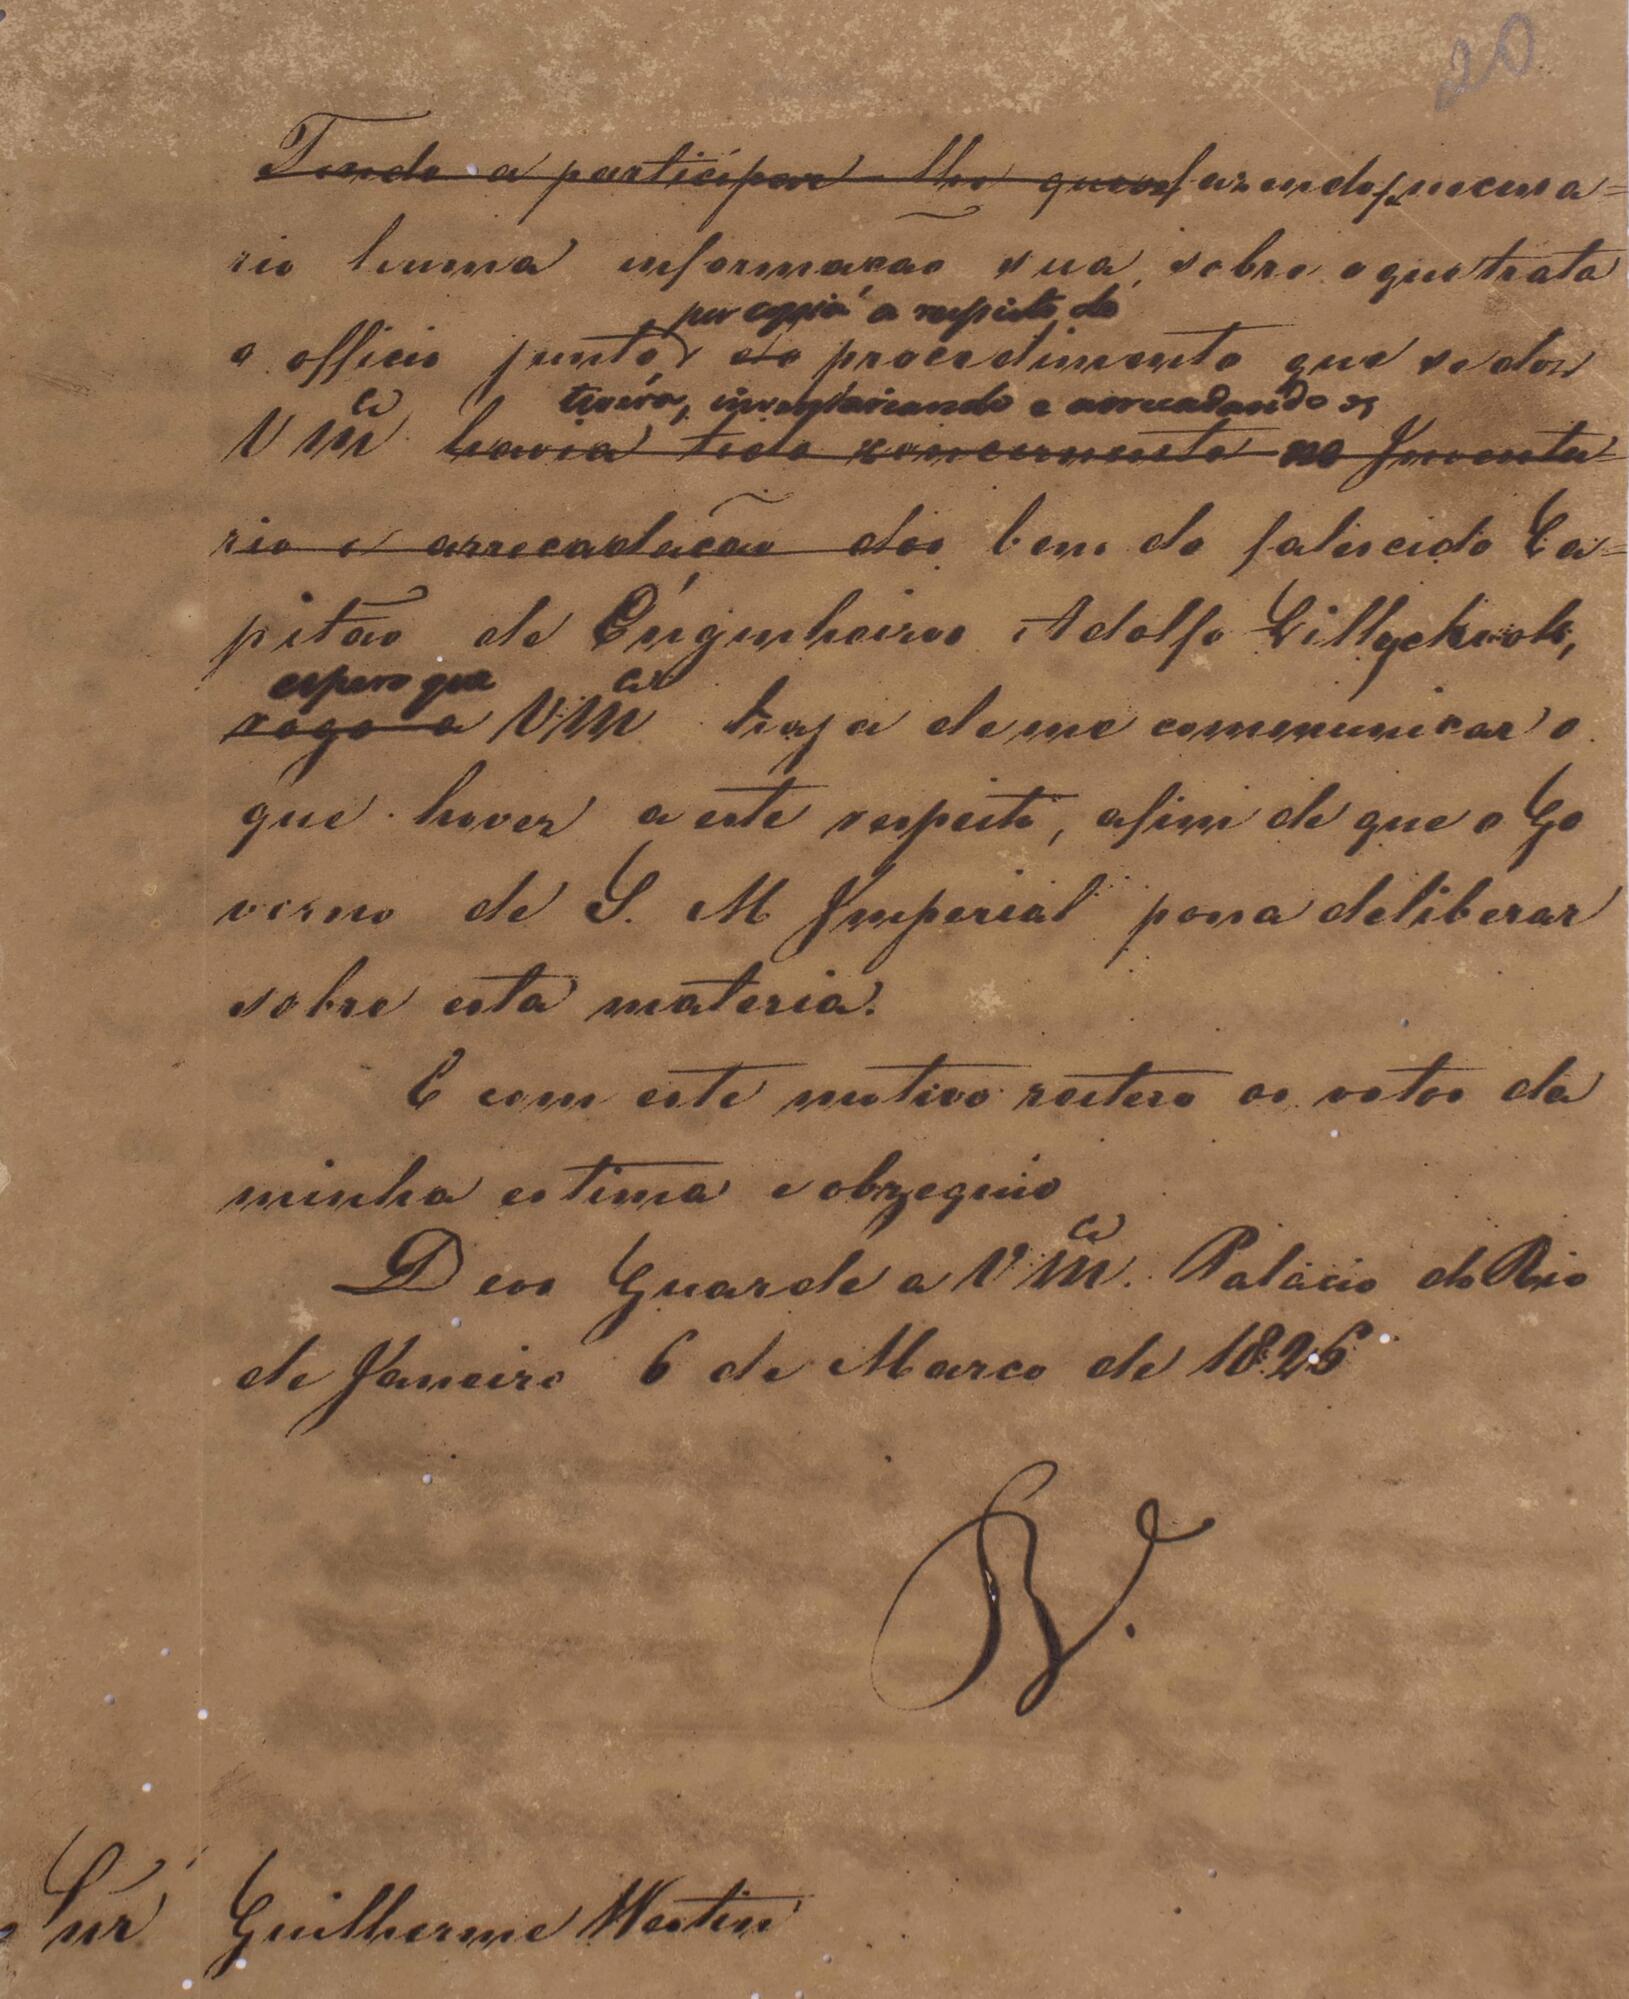 20
Tendo a participar lhe que fazendo-se necessa=
rio huma informação sua, sobre o que trata
por copia a respeito do
o officio junto, do procedimento que se dos
tivera, inventariando e arrecadando os
V M.ce havia tido concernente ao Inventa=
rio e arrecadação dos bens do falescido Ca=
pitão de Engenheiros Adolfo
espero que
rogo a V M.ce haja de me communicar o
que hover a este respeito, afim de que o Go
verno de S. M Imperial possa deliberar
sobre esta materia.
E com este motivo reitero os votos da
minha estima e obzequio
Deos Guarde a V M.ce. Palacio do Rio
de Janeiro 6 de Marco de 1826
V.
Snr Guilherme Westin